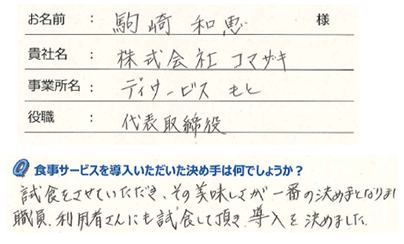 お名前 : 駒崎 和恵 様
貴社名 : 株式会社 コマザキ
事業所名 : デイサービス もと
役職 : 代表取締役
Q 食事サービスを導入いただいた決め手は何でしょうか?
試食をさせていただき、その美味しさが一番の決め手となりまし
職員、利用者さんにも試食して頂き、導入を決めました。